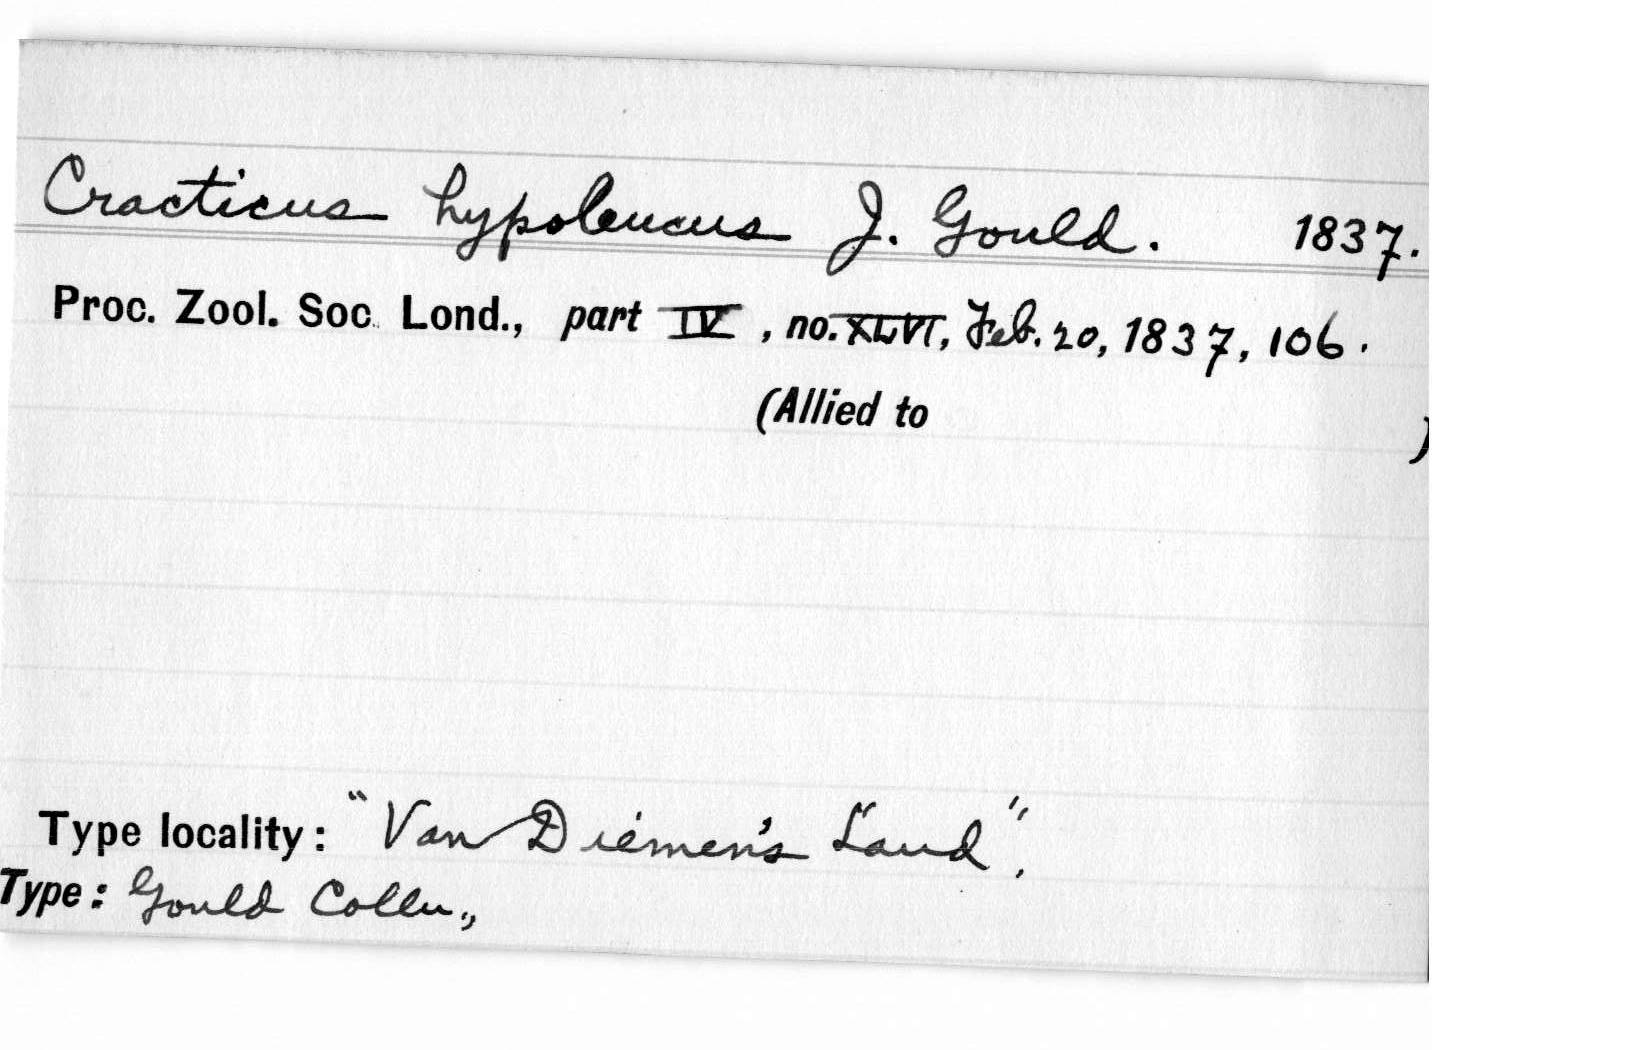 Cracticus hypoleucus J. Gould. 1837.
Proc. Zool. Soc. Lond., part IV, no. XLVI, Feb. 20, 1837, 106.
(Allied to )
Type locality: "Van Diemen's Land",
Type: Gould Colln.,